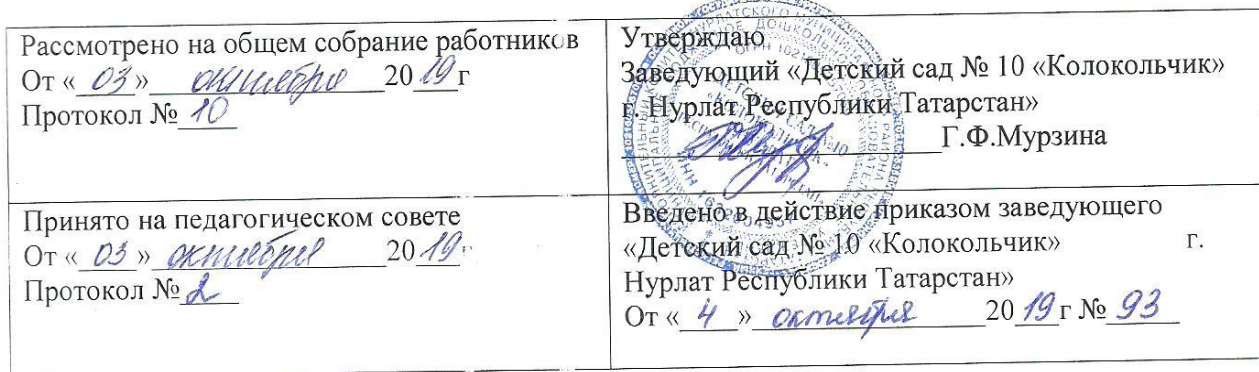 Рассмотрено на общем собрание работников
От « 03 » октября 20 19 г
Протокол № 10
Утверждаю
Заведующий «Детский сад № 10 «Колокольчик»
г. Нурлат Республики Татарстан»
Г.Ф.Мурзина
Принято на педагогическом совете
От « 03 » октября 20 19 г
Протокол № 2
Введено в действие приказом заведующего
«Детский сад № 10 «Колокольчик» г.
Нурлат Республики Татарстан»
От « 4 » октября 20 19 г № 93